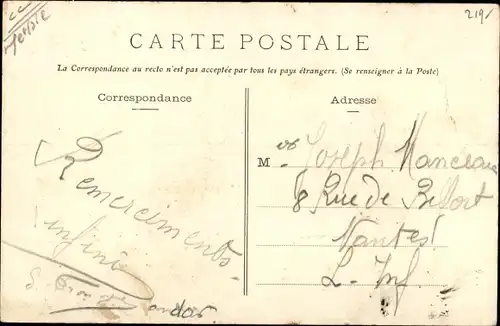 219
CARTE POSTALE
La Correspondance au recto n'est pas acceptée par tous les pays étrangers. (Se renseigner à la Poste)
Correspondance
Adresse
Remerciments
infinis
M Joseph Manceau
8 Rue de Belfort
Nantes
L-Inf